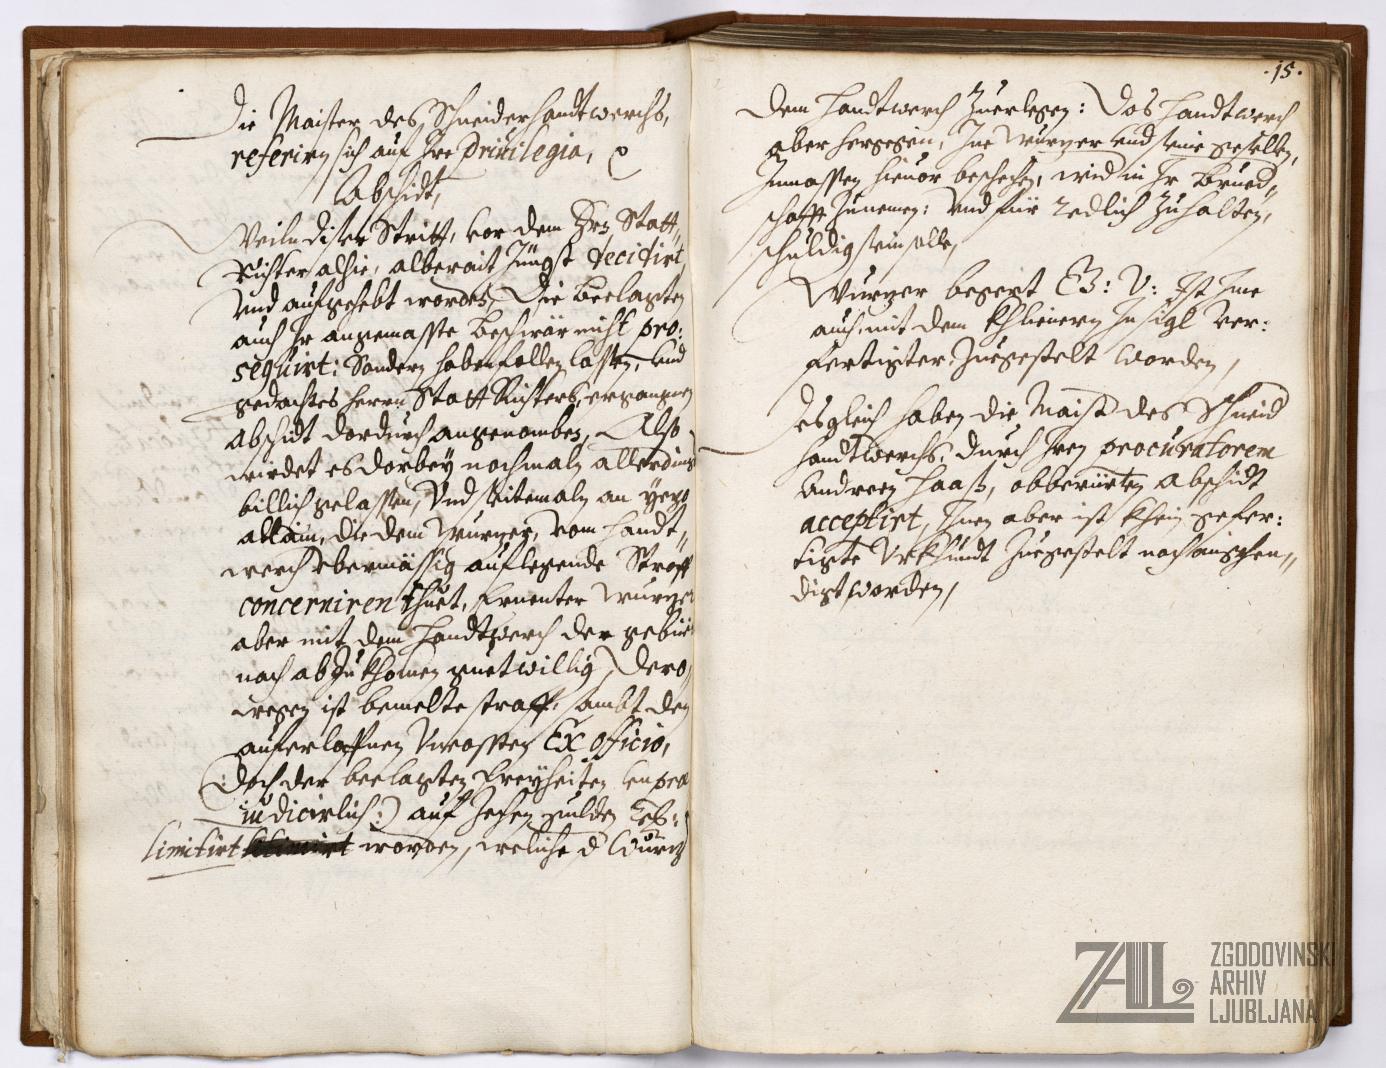 Die Maister des Schneiderhandtwerchs,
referirn sich auf Ire Priuilegia,
Abschidt,
Weiln diser Stritt, vor dem Hrn Statt-
Richter alhie, alberait Jüngst decidirt
vnd aufgehebt worden, Die Beclagten
auch Ir angemasste Beschwär nicht pro:
sequirt: Sondern haben fallen lassen, vnd
gedachtes Herrn Statt Richters, ergangnen
Abschidt dardurch angenomben, Also
wirdet es darbey nochmaln allerdings
billich gelassen, Vnd seitemaln an yezo
allain, die dem Wurzer, vom Handt-
werch vbermässig auflegende Straff
concerniren thuet, Ernenter Wurzer
aber mit dem Handtwerch der gebür
nach abzukhomen guetwillig, Dero-
wegen ist bemelte straff, sambt den
auferlofnen Vncossten Ex officio,
(:Doch der beclagten Freyheiten vnprae
iudicirlich:) auf Zehen gulden
limitirt worden, welche d Wurzer
.15.
dem Handtwerch Zuerlegen: Das Handtwerch
aber hergegen, Ine Wurzer vnd seine gesellen,
Inmassen hieuor beschehen, wid in Ir Brued-
schafft Zunemen: vnd für redlich Zuhalten,
schuldig sein solle,
Wurzer begert Ist Ime
auch, mit dem khlienern Insigl ver:
fertigter Zuegestelt worden,
Desgleich haben die Maist des Schneid
Handtwerchs, durch Iren procuratorem
Andreen Haas, obberüerten Abschidt
acceptirt, Inen aber ist khein gefer:
tigte Vrkhundt Zuegestelt noch aingehen-
digt worden,
ZAL
ZGODOVINSKI
ARHIV
LJUBLJANA